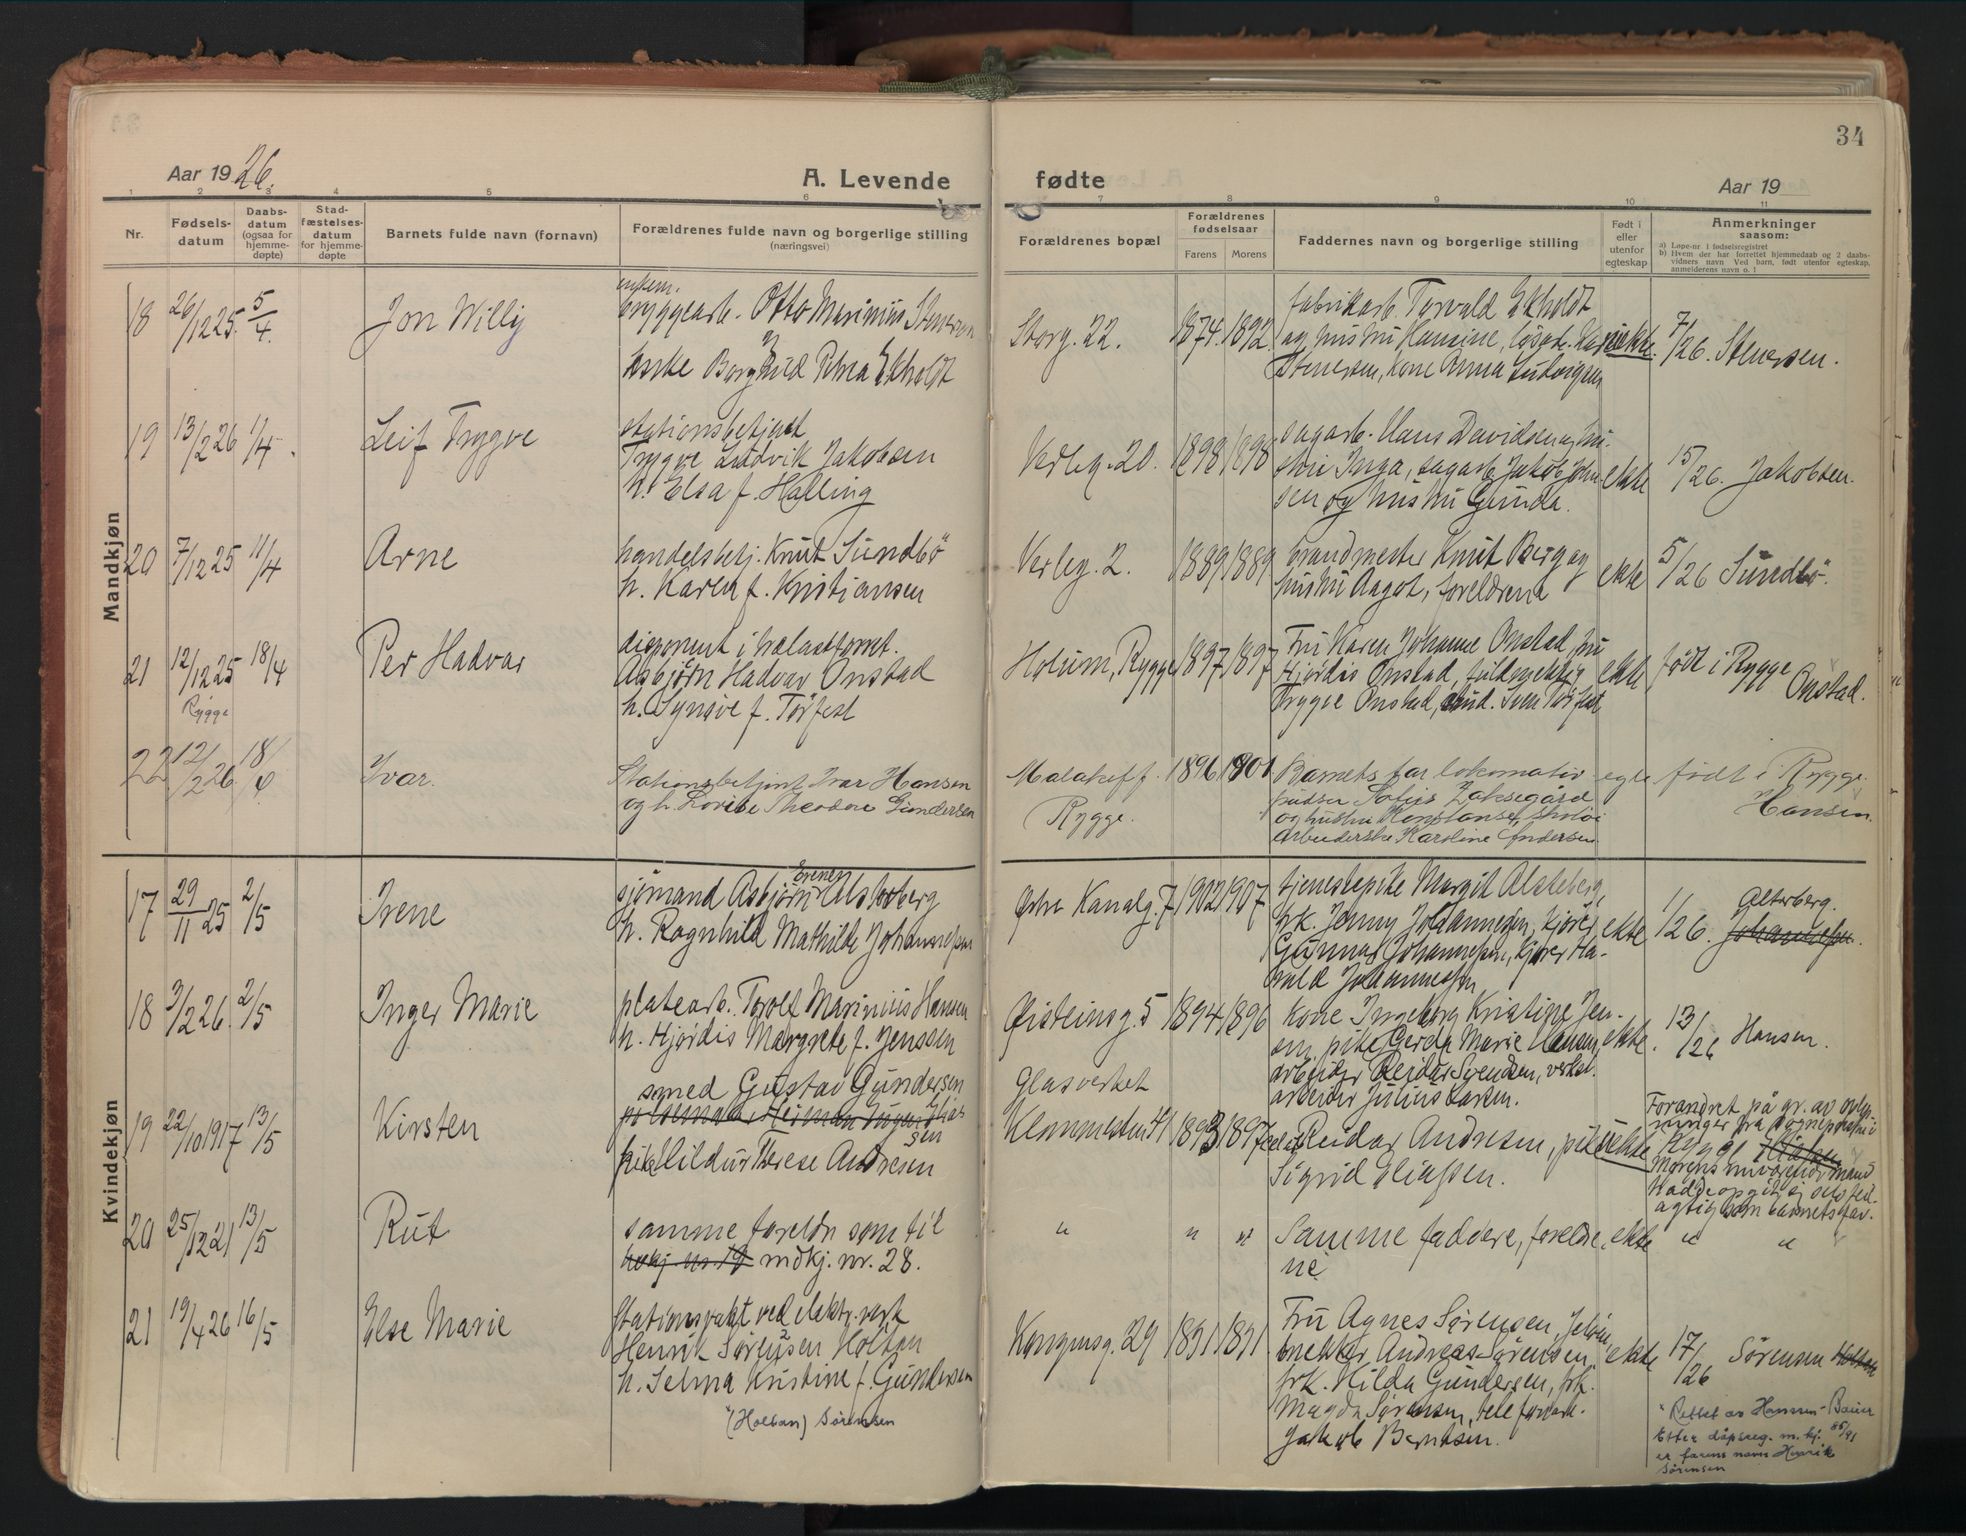 34
Aar 1926.
A. Levende
fødte
Aar 19
1 2 3 4 5 6 7 8 9 10 11
Nr.
Fødsels-
datum
Daabs-
datum
(ogsaa for
hjemme-
døpte)
Stad-
fæstelses-
datum
for hjemme-
døpte
Barnets fulde navn (fornavn)
Forældrenes fulde navn og borgerlige stilling
(næringsvei)
Forældrenes bopæl
Forældrenes
fødselsaar
Farens
Morens
Faddernes navn og borgerlige stilling
Født i
eller
utenfor
egteskap
Anmerkninger
saasom:
a) Løpe-nr. i fødselsregistret
b) Hvem der har forrettet hjemmedaab og 2 daabs-
vidners navn Ved barn, født utenfor egteskap,
anmelderens navn o. l
Mandkjøn
18 26/12 25. 5/4. Jon Willy
bryggearb. Otto Marinius Stenersen
Borghild Petrea Ekholdt
Storg. 22. 1874. 1892.
fabrikarb. Torvald Ekholdt
og hustru Hansine, løsarb.
Stenersen, kone Anna Ludvigsen
uekte. 7/26. Stenersen.
19 13/2 26 1/4. Leif Trygve
stationsbetjent
Trygve Ludvik Jakobsen
h. Elsa f. Halling
Verleg. 20. 1898 1898
sagarb. Hans Davidsen og hu-
stru Inga, sagarb. Jakob John-
sen og hustru Gunda.
ekte 15/26. Jakobsen.
20 7/12 25 11/4 Arne
handelsbetj. Knut Sundbö
h. Karen f. Kristiansen
Verleg. 2. 1889 1889
brandmester Knut Berg og
hustru Aagot, foreldrene
ekte 5/26 Sundbö.
21 12/12 25 18/4 Per Hadvar
Rygge
disponent i trælastforret.
Asbjørn Hadvar Onstad
h. Synøve f. Torfest
Holum, Rygge 1897 1897
Fru Karen Johanne Onstad, fru
Hjørdis Onstad, fuldmektig
Trygve Onstad, stud. Sven Torfest
ekte født i Rygge
Onstad.
22 12/2 26 18/4 Ivar.
Stationsbetjent Ivar Hansen
og h. Lovise Theodore Gundersen
Malakoff
Rygge.
1896 1901
Barnets far lokomotiv
pudser Sofus Zaksegård
og hustru Konstanse, skotøi
arbeiderske Karoline Andersen
egte født i Rygge
Hansen.
Kvindekjøn
17 29/11 25 2/5 Irene
Erener
sjømand Asbjørn Alsterberg
h. Ragnhild Mathilde Johannessen
Østre Kanalg. 7 1902 1907
tjenestepike Margit Alsteberg,
frk. Jenny Johannessen, kjører
Gunnar Johannessen, kjører Ha-
rald Johannessen
ekte 1/26. Alterberg.
Johannessen.
18 3/2 26. 2/5 Inger Marie
platearb. Torolf Marinius Hansen
h. Hjørdis Margrete f. Jenssen
Øisteinsg. 5 1894 1896
Kone Ingeborg Kristine Jen-
sen, pike Gerda Marie Hansen,
arbeider Reidar Svendsen, verks-
arbeider Julius Larsen.
ekte. 13/26 Hansen.
19 22/10 1917 13/5 Kirsten
smed Gustav Gundersen
pike Hildur Therese Andresen
Glasverket
Klommesten 41 1893 1897
Reidar Andresen, pike
Sigrid Eliassen.
uekte
Forandret på gr. av oplys-
ninger fra sogneprestn i
Rygge
Morens nuværende mand
hadde opgit sig selv feil-
agtig som barnets far.
20 25/12 21 13/5 Rut
samme foreldre som til
kvkj. nr. 19 mdkj. nr. 28.
" " "
Samme faddere, foreldre
ne
ekte " "
21 19/4 26 16/5 Else Marie
Stationsvakt ved elektr. verk
Henrik Sørensen Holtan
h. Selma Kristine f. Gundersen
"(Holtan) Sørensen
Kongensg. 29 1891 1891.
Fru Agnes Sørensen, Jeløen
snekker Andreas Sørensen,
frk. Hilda Gundersen, frk.
Magda Sørensen, telefonarb.
Jakob Berntsen.
ekte 17/26 Sørensen Holtan
" Rettet av Hanssen-Bauer
Etter dåpsreg. m. kj. 86/91
er farens navn Henrik
Sørensen